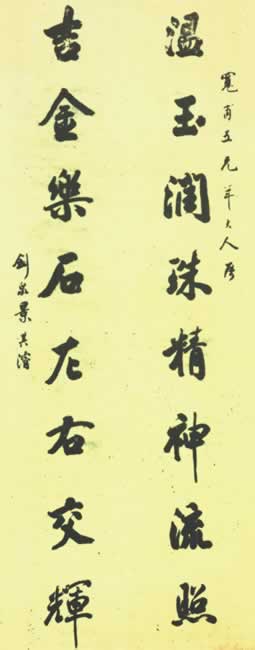 寬甫五兄年大人屬
溫玉潤珠精神流照
吉金樂石左右交輝
劍泉景其濬